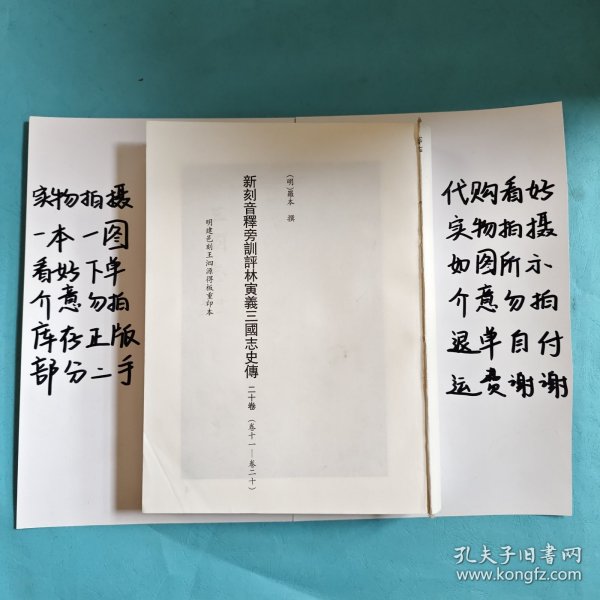 实物拍摄
一本一图
看好下单
介意勿拍
库存正版
部分二手
(明)羅本 撰
新刻音釋旁訓評林演義三國志史傳 二十卷 (卷十一—卷二十)
明建邑刻王泗源得板重印本
代购看好
实物拍摄
如图所示
介意勿拍
退单自付
运费谢谢
孔夫子旧书网
www.kongfz.com